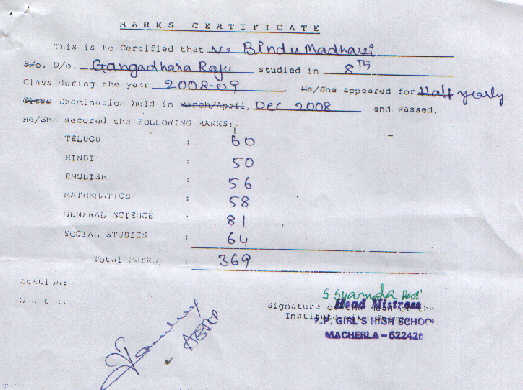 MARKS CERTIFICATE
This is to Certified that M/s Bindu Madhavi
S/o. D/o. Gangadhara Raju studied in 8TH
Class during the year 2008-09 He/She appeared for Half yearly
Class Examination held in March/April, Dec 2008 and Passed.
He/She secured the FOLLOWING MARKS:-
TELUGU : 60
HINDI : 50
ENGLISH : 56
MATHEMATICS : 58
GENERAL SCIENCE : 81
SOCIAL STUDIES : 64
Total MARKS : 369
Head Mistress
Signature of the Head of the
Institution
Z.P. GIRL'S HIGH SCHOOL
MACHERLA - 522426